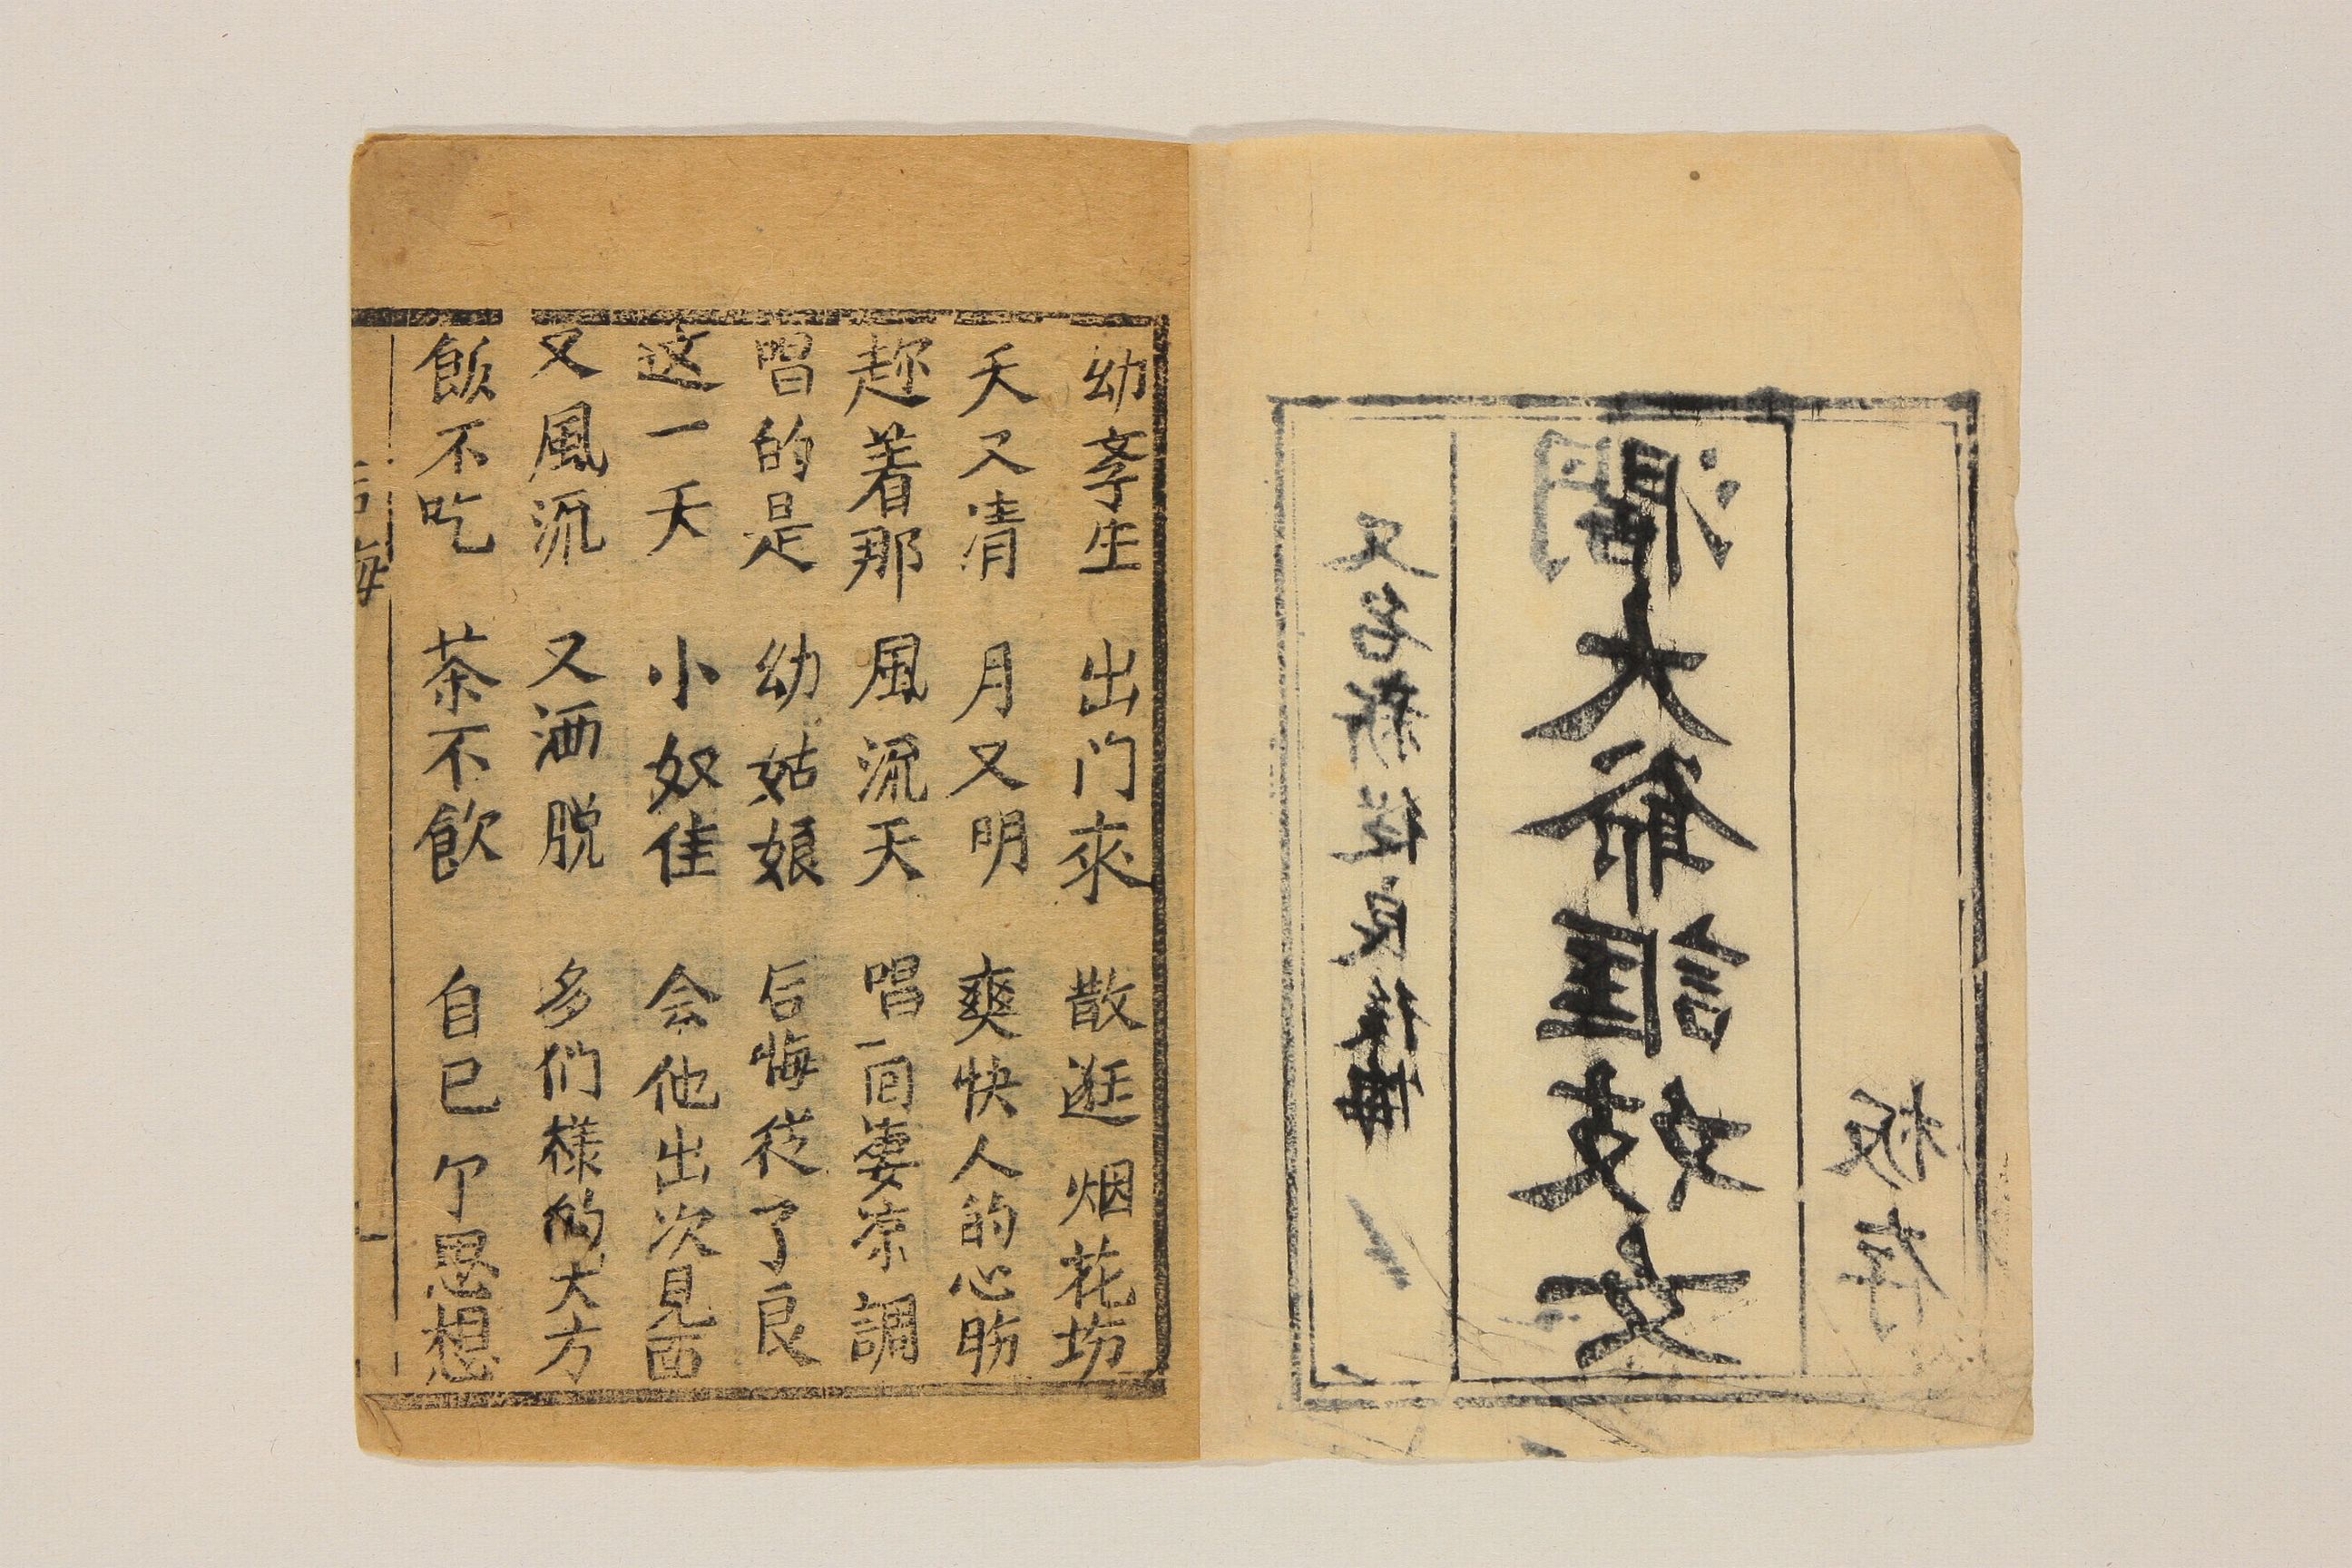 又名新從良後悔
濶大爺誆妓女
板存
幼斈生 出门來 散逛烟花坊
天又清 月又明 爽快人的心肠
趂着那 風流天 唱一 妻凉調
唱的是 幼姑娘 后悔從了良
这一天 小奴佳 会他出次見面
又風流 又洒脱 多們樣的大方
飯不吃 茶不飲 自己个思想
后悔